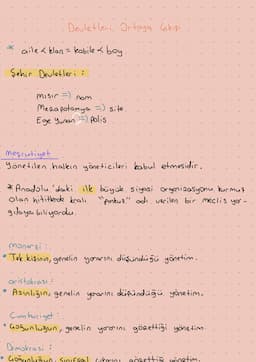 Devletleri Ortaya Çıkışı
* aile < klan = kabile < boy
Şehir Devletleri :
Mısır => nom
Mezapotamya => site
Ege Yunan => Polis
Meşruiyet
Yönetilen halkın yöneticileri kabul etmesidir.
* Anadolu'daki ilk büyük siyasi organizasyonu kurmuş
olan hititlerde kralı "Pankuş" adı verilen bir meclis yar-
gılayabiliyordu.
monarşi :
* Tek kişinin, genelin yararını düşündüğü yönetim.
aristokrasi :
* Azınlığın, genelin yararını düşündüğü yönetim.
Cumhuriyet :
* Çoğunluğun, genelin yararını gözettiği yönetim.
Demokrasi :
* Çoğunluğun, sınıfsal çıkarını gözettiği yönetim.